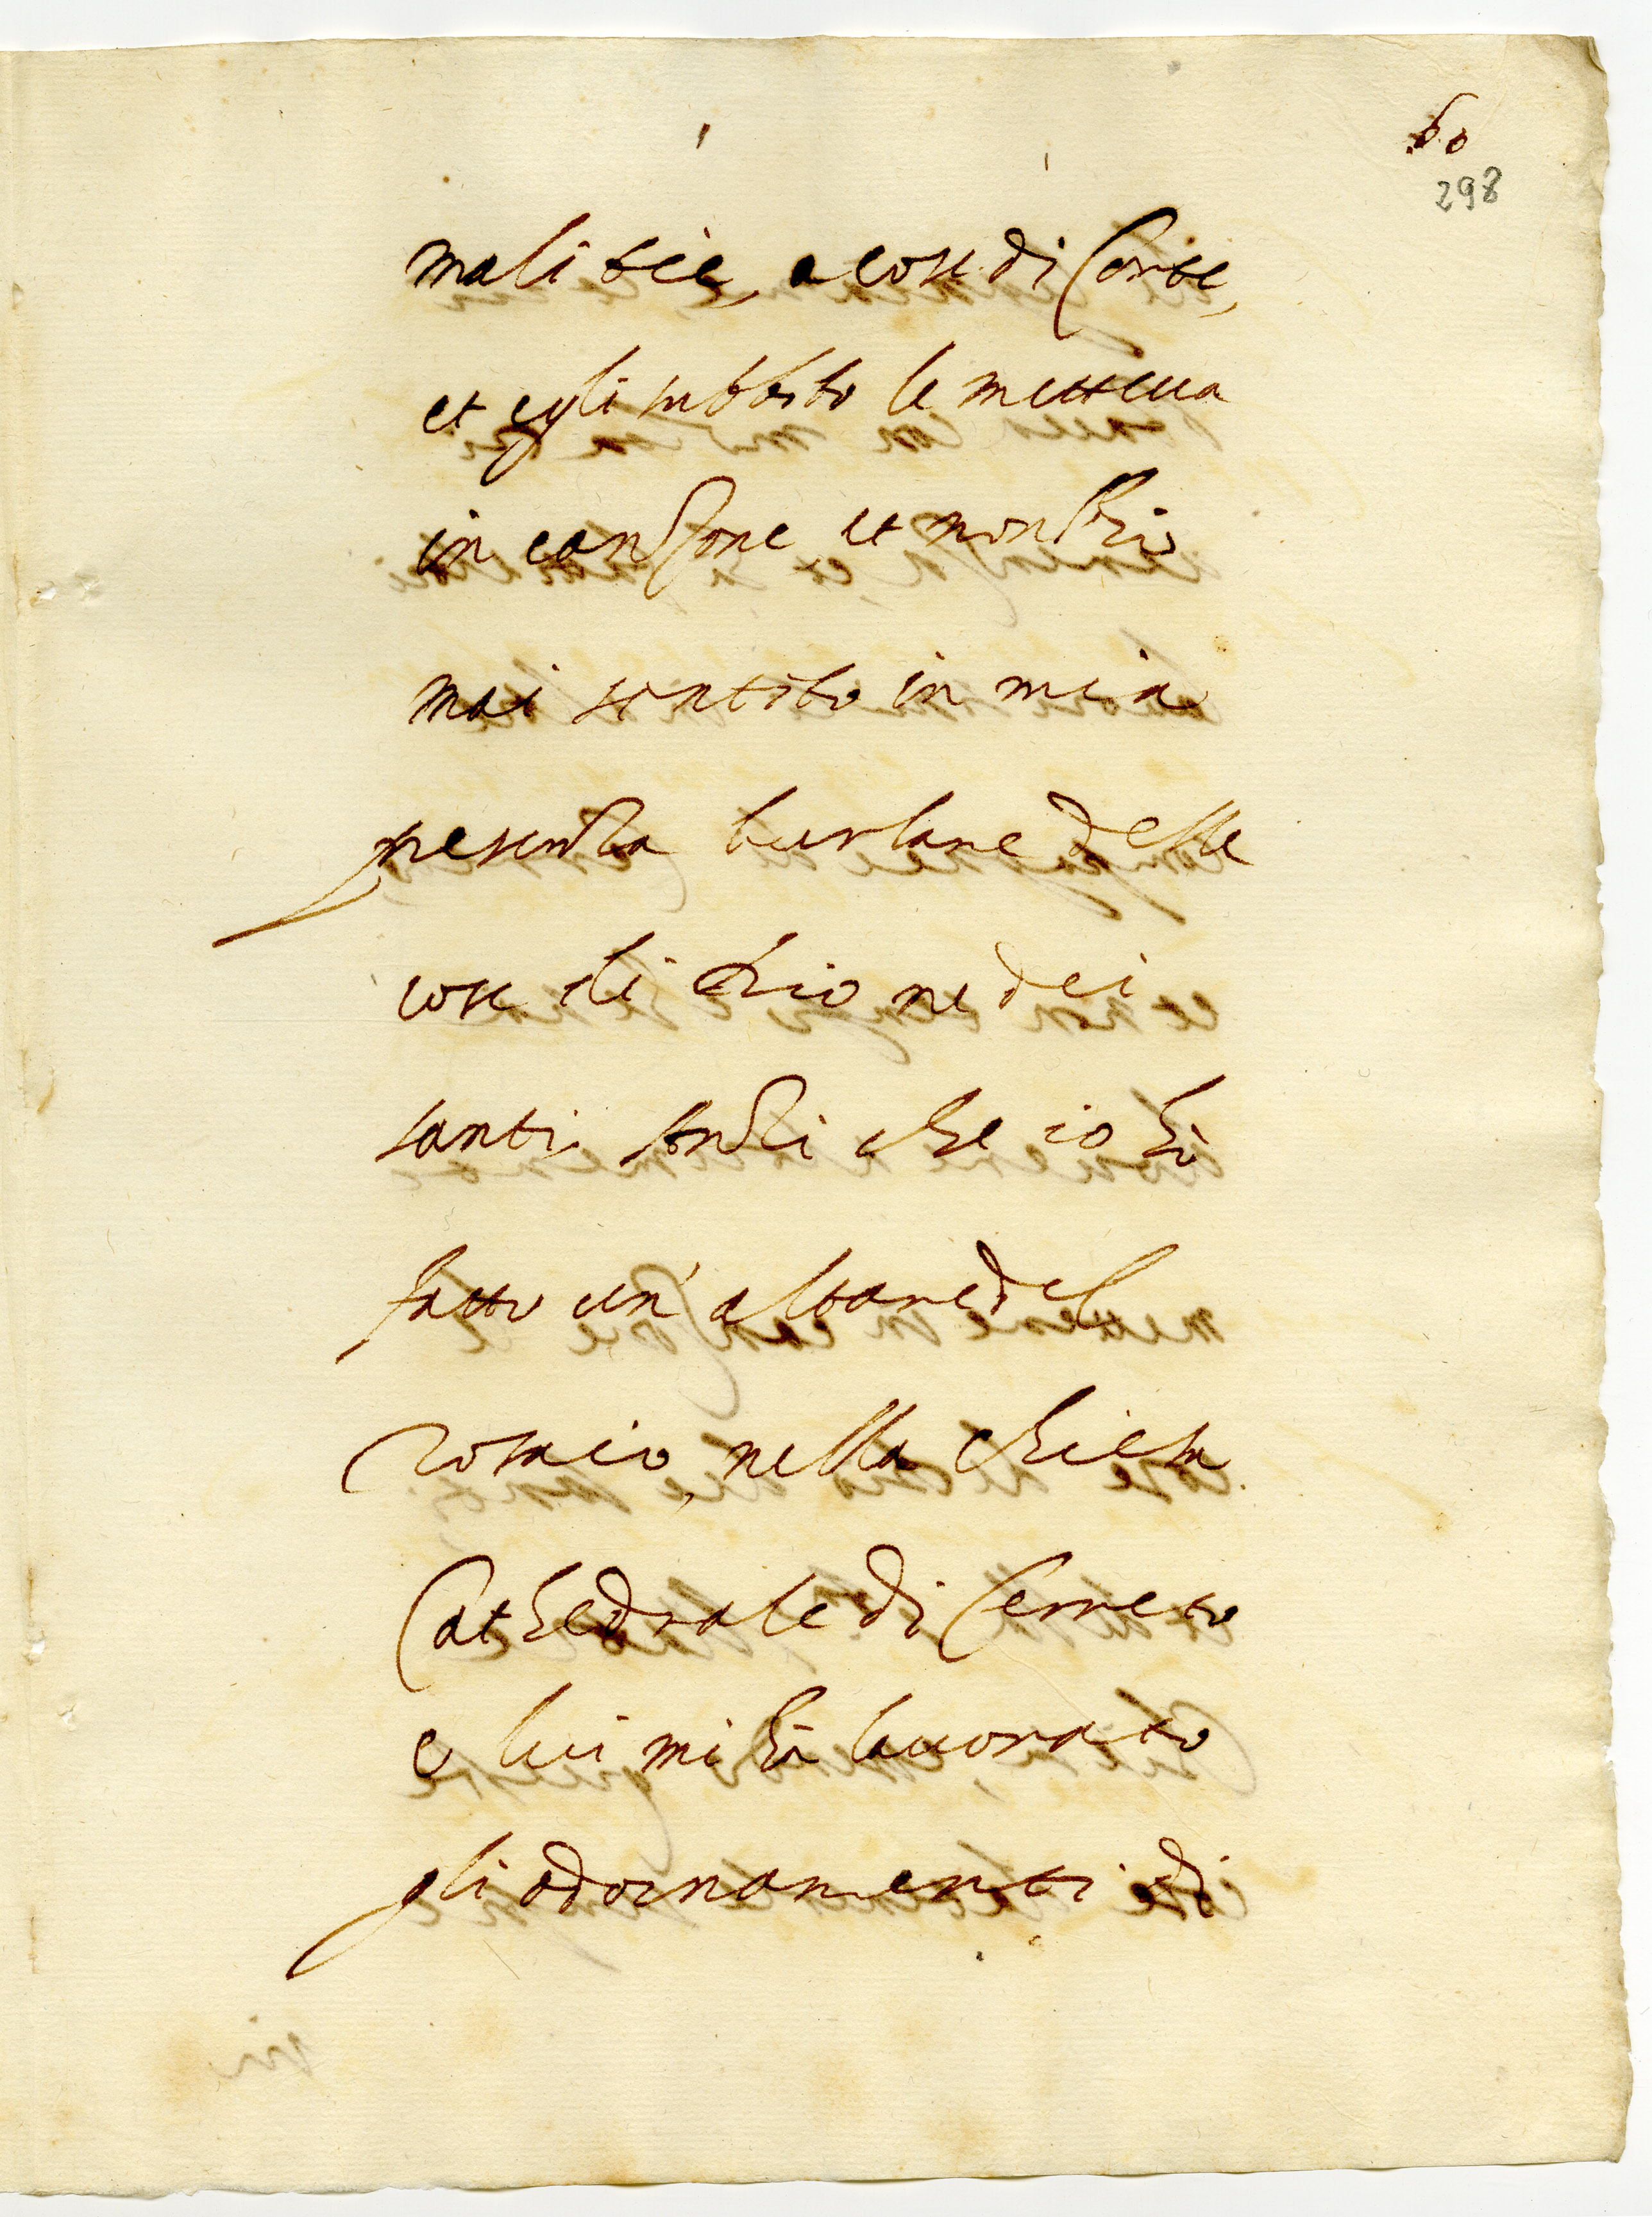 60
298
malitie, a cose di Corte,
et egli subbito le metteua
in canzone et non hò
mai sentito in mia
presenza burlare delle
cose di Dio ne dei
santi. Anzi che io hò
fatto un' altare del
rosaio, nella chiesa
Cathedrale di Cerreto
e lui mi hà lauorato
gli adornamenti di